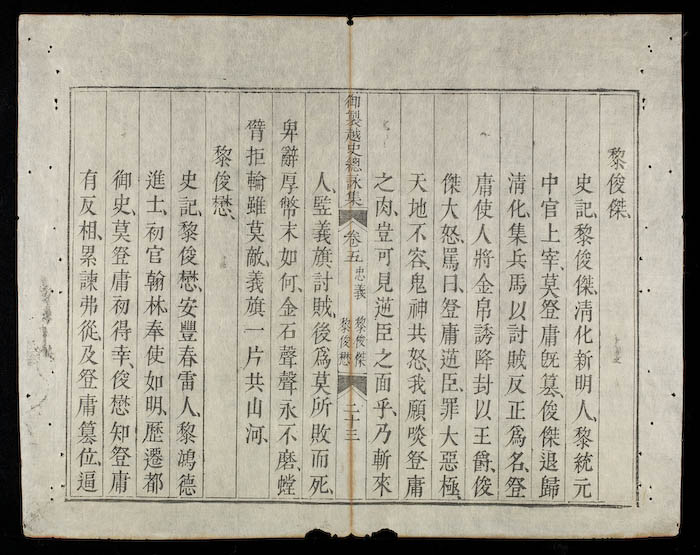 黎俊傑、
史記、黎俊傑、清化新明人、黎統元
中官上宰、莫登庸旣篡、俊傑退歸
清化、集兵馬、以討賊反正爲名、登
庸使人將金帛誘降、封以王爵、俊
傑大怒、罵曰、登庸逆臣、罪大惡極、
天地不容、鬼神共怒、我願啖登庸
之肉、豈可見逆臣之面乎、乃斬來
御製越史總詠集 卷五 忠義 黎俊傑 黎俊懋 二十三
人、竪義旗討賊、後爲莫所敗而死、
卑辭厚幣末如何、金石聲聲永不磨、螳
臂拒輪雖莫敵、義旗一片共山河、
黎俊懋、
史記、黎俊懋、安豐春雷人、黎鴻德
進士、初官翰林、奉使如明、歷遷都
御史、莫登庸初得幸、俊懋知登庸
有反相、累諫弗從、及登庸篡位、逼